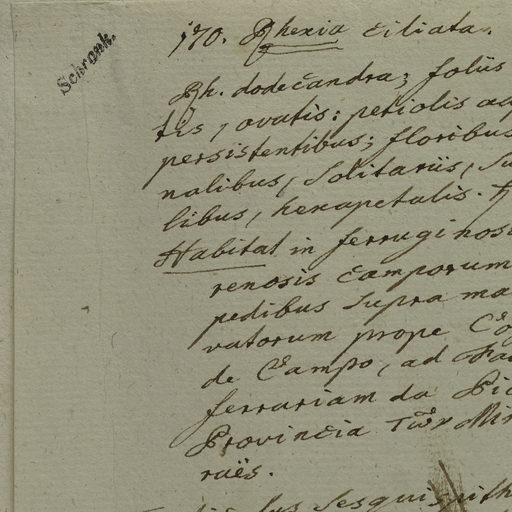 Schronk.
170. Rhexia ciliata.
Rh. dodecandra; foliis
tis, ovatis: petiolis
persistentibus; floribus
nalibus, solitariis,
libus, hexapetalis.
Habitat in ferruginos
renosis camporum
pedibus supra ma
vatorum prope Co
de Campo, ad Fa
ferrariam da Pi
Provincia των Min
raës.